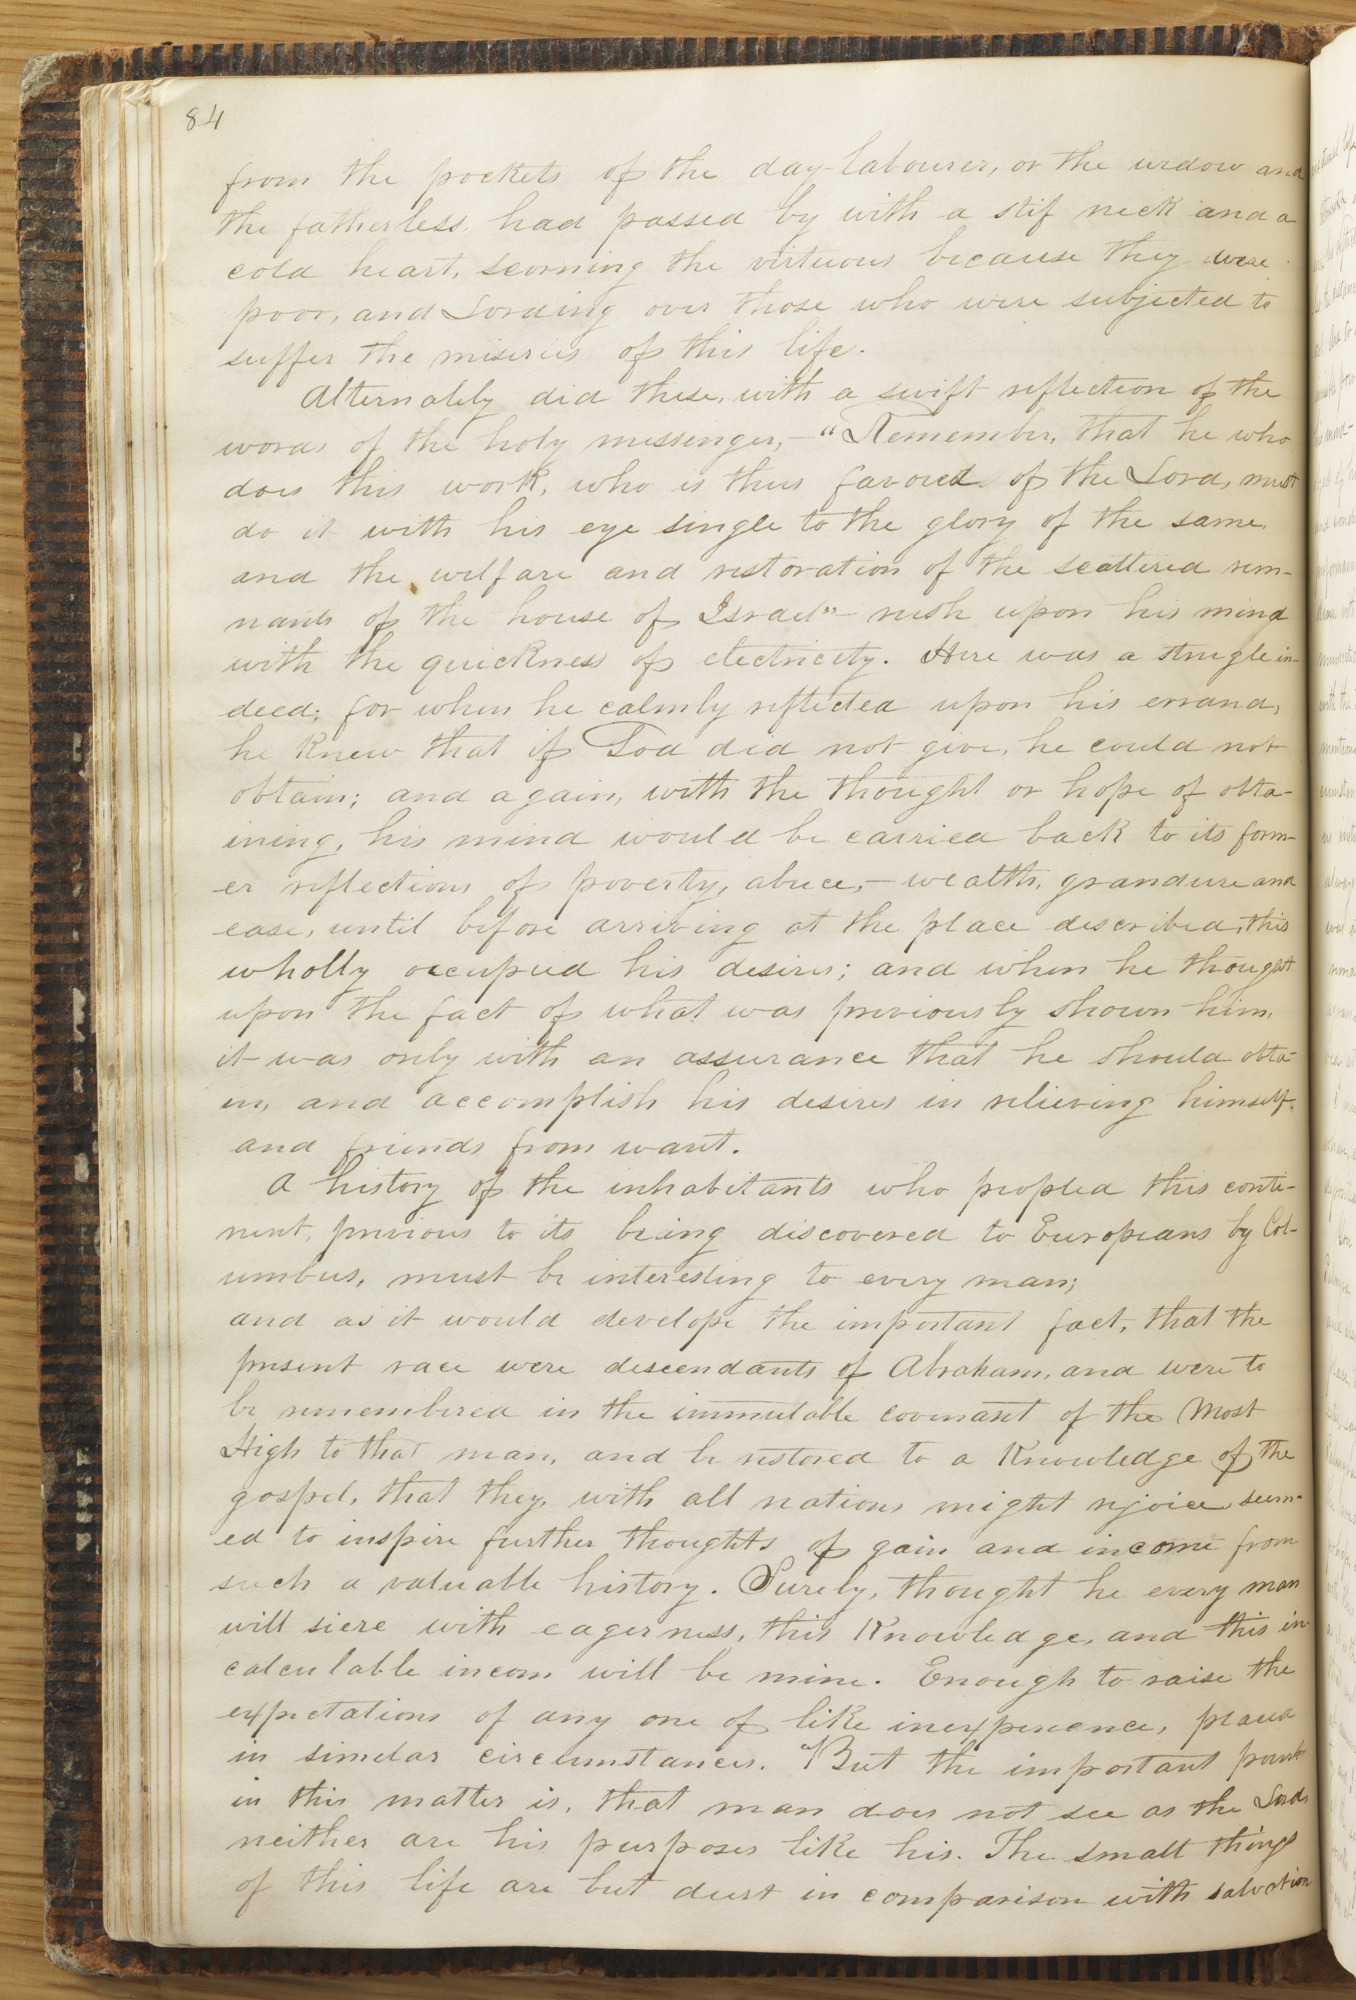 84
from the pockets of the day-labourer, or the widow and
the fatherless, had passed by with a stif neck and a
cold heart, scorning the virtuous because they were
poor, and Lording over those who were subjected to
suffer the miseries of this life.
Alternately did these, with a swift reflection of the
words of the holy messenger,— "Remember, that he who
does this work, who is thus favored of the Lord, must
do it with his eye single to the glory of the same,
and the welfare and restoration of the scattered rem-
nants of the house of Israel"— rush upon his mind
with the quickness of electricity. Here was a strugle in-
deed; for when he calmly reflected upon his errand,
he knew that if God did not give, he could not
obtain; and again, with the thought or hope of obta-
ining, his mind would be carried back to its form-
er reflections of poverty, abuce,— wealth, grandure and
ease, until before arriving at the place described, this
wholly occupied his desires; and when he thought
upon the fact of what was previously shown him,
it was only with an assurance that he should obta-
in, and accomplish his desires in relieving himself
and friends from want.
A history of the inhabitants who peopled this conti-
nent, previous to its being discovered to Europeans by Col-
umbus, must be interesting to every man;
and as it would develope the important fact, that the
present race were descendants of Abraham, and were to
be remembered in the immutable covenant of the Most
High to that man, and be restored to a Knowledge of the
gospel, that they, with all nations might rejoice, seem-
ed to inspire further thoughts of gain and income from
such a valuable history. Surely, thought he every man
will siere with eagerness, this Knowledge, and this in-
calculable incom will be mine. Enough to raise the
expectations of any one of like inexperience, placed
in similar circumstances. But the important point
in this matter is, that man does not see as the Lord,
neither are his purposes like his. The small things
of this life are but dust in comparison with salvation